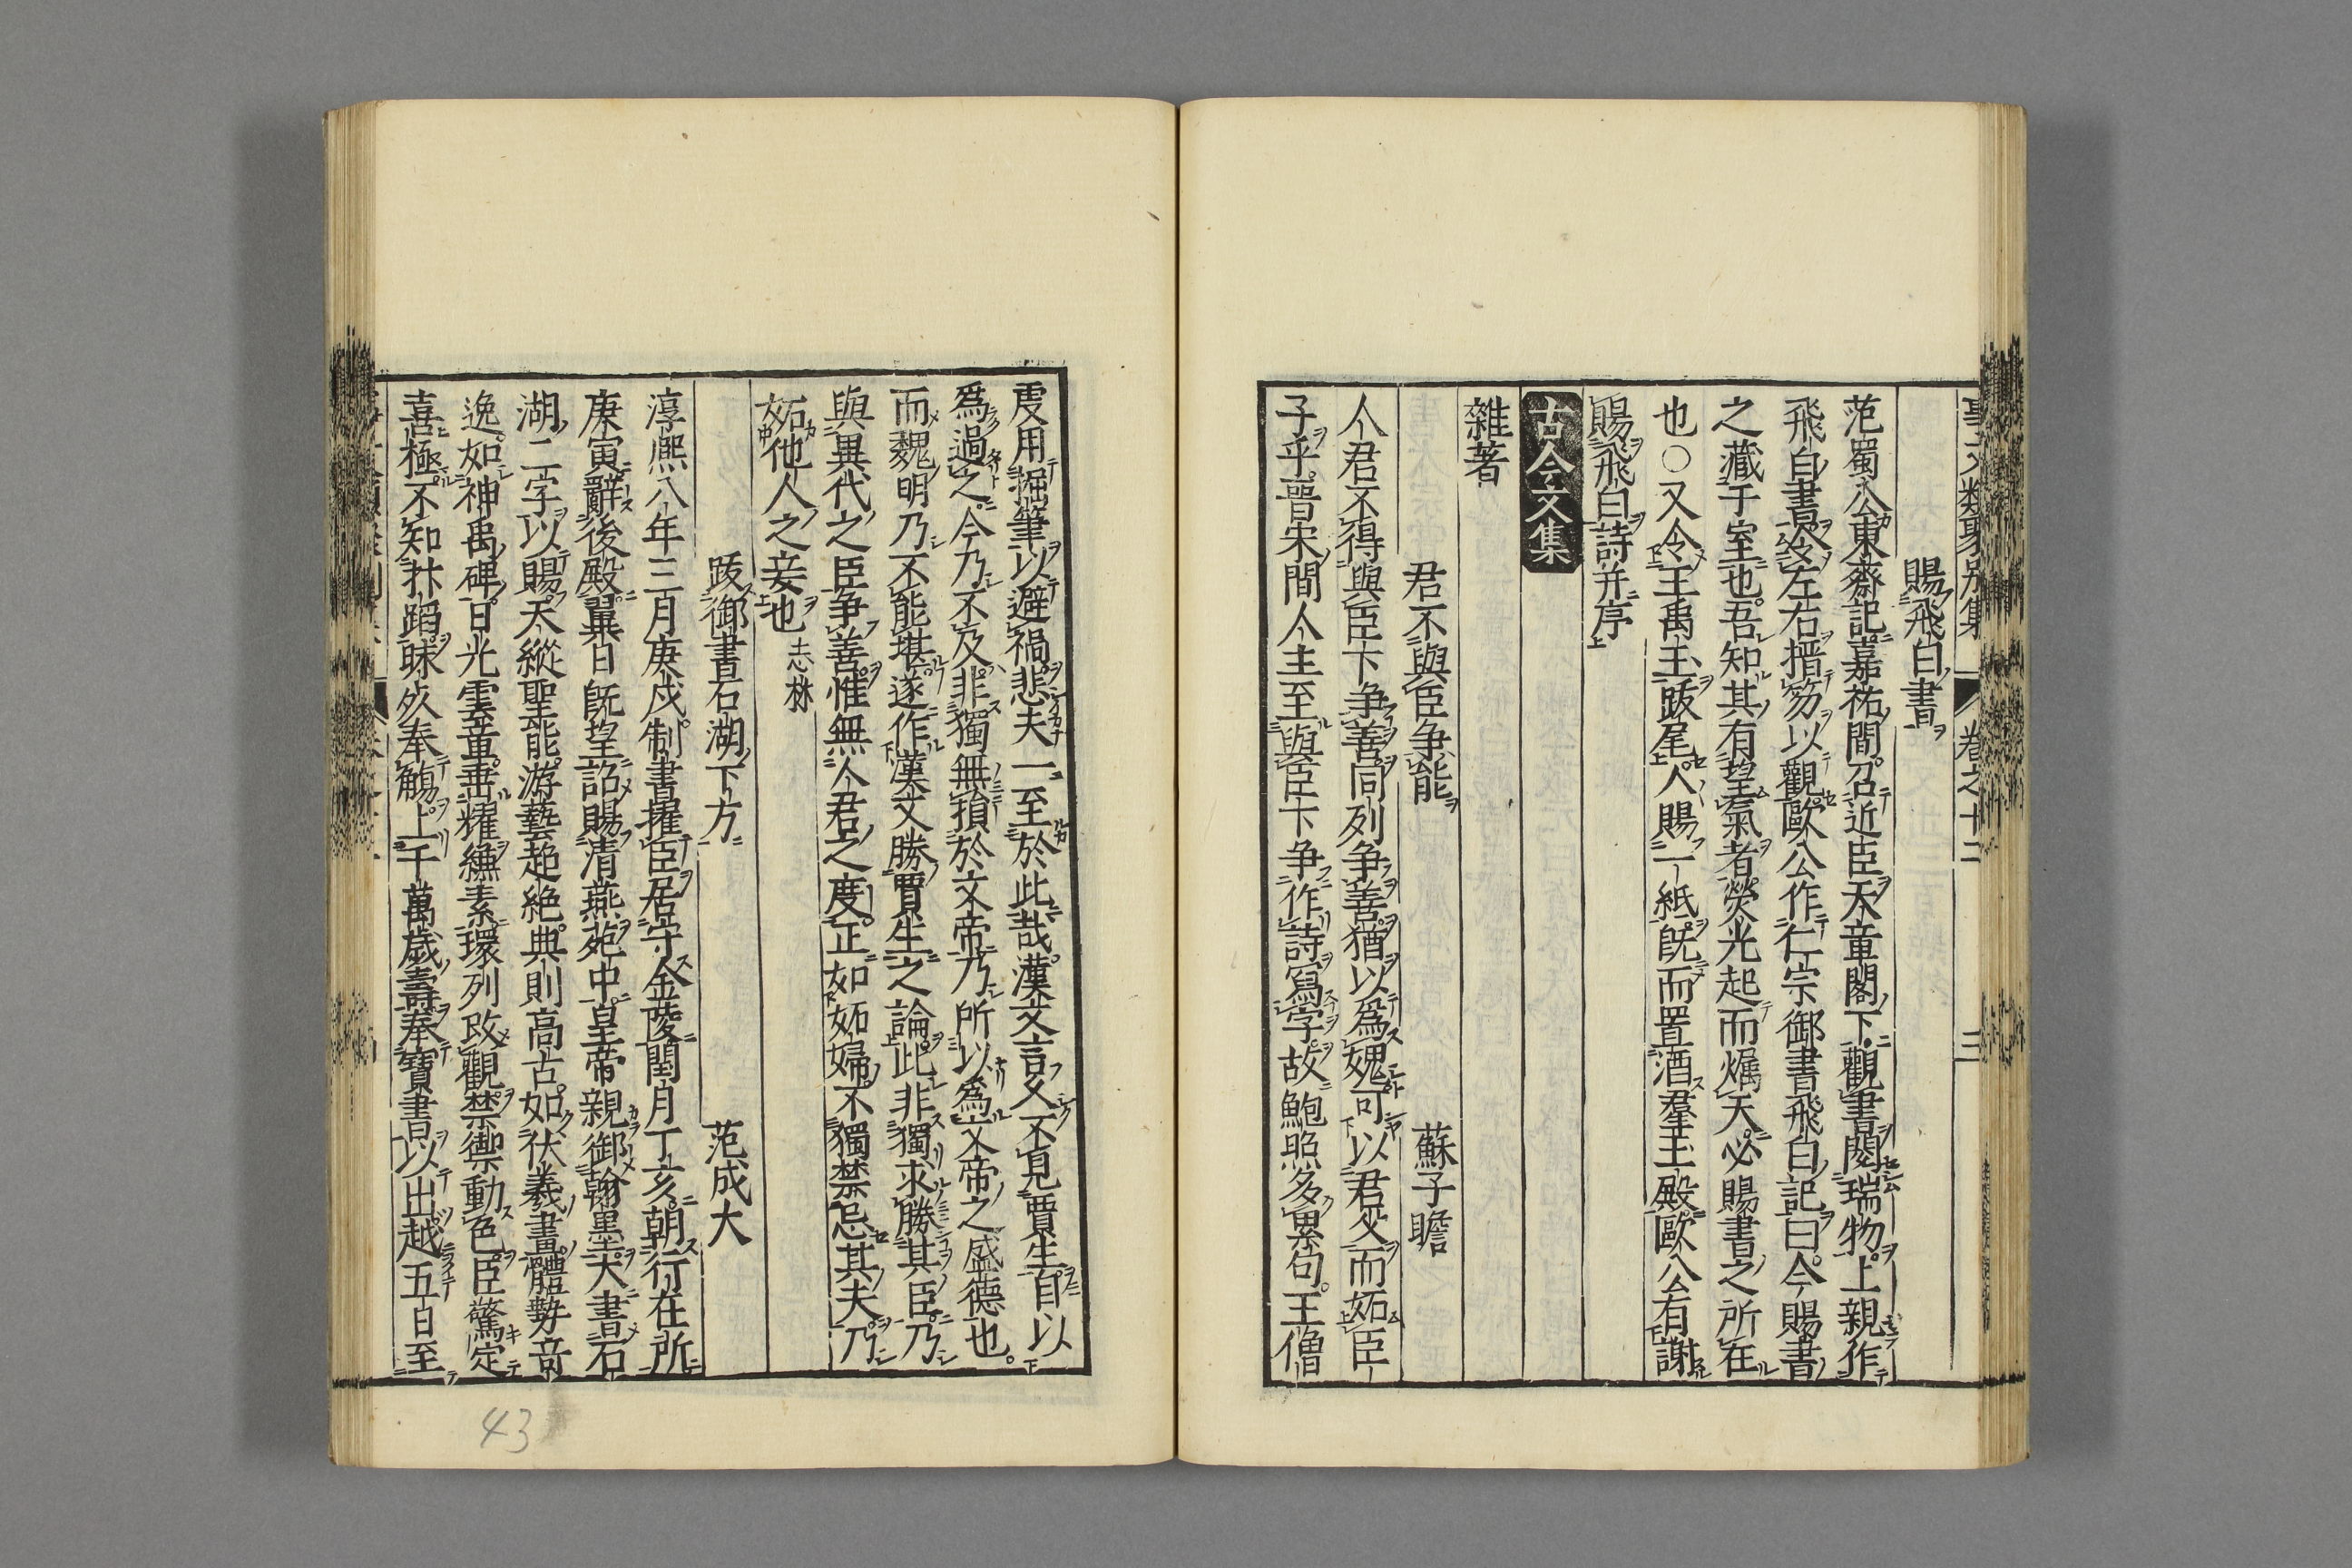 事文類聚別集 卷之十二 三
賜飛白書
范蜀公東齋記嘉祐間召近臣天章閣下觀書閱瑞物上親作
飛白書俊左右搢笏以觀歐公作仁宗御書飛白記曰今賜書
之藏于室也吾知其有望氣者熒光起而爥天必賜書之所在
也○又令王禹玉跋尾人賜一紙既而置酒羣玉殿歐公有謝
賜飛白詩并序
古今文集
雜著
君不與臣争能 蘇子瞻
人君不得與臣下争善同列争善猶以為媿可以君父而妬臣
子乎晉宋間人主至與臣下争作詩寫字故鮑照多累句王僧
虔用掘筆以避禍悲夫一至於此哉漢文言乆不見賈生自以
為過之今乃不及非獨無損於文帝乃所以為文帝之盛德也
而魏明乃不能堪遂作漢文勝賈生之論此非獨求勝其臣乃
與異代之臣争善惟無人君之度正如妬婦不獨禁忌其夫乃
妬他人之妾也 志林
跋御書石湖下方 范成大
淳熈八年三月庚戍制書擢臣居守金陵閏月丁亥朝行在所
庚寅辭後殿翼日既望詔賜清燕苑中皇帝親御翰墨大書石
湖二字以賜天縱聖能游藝超絶典則高古如伏羲畫體勢竒
逸如神禹碑日光雲章垂耀縑素環列改觀禁禦動色臣驚定
喜極不知抃蹈昧死奉觴上千萬歲壽奉寶書以出越五日至
43